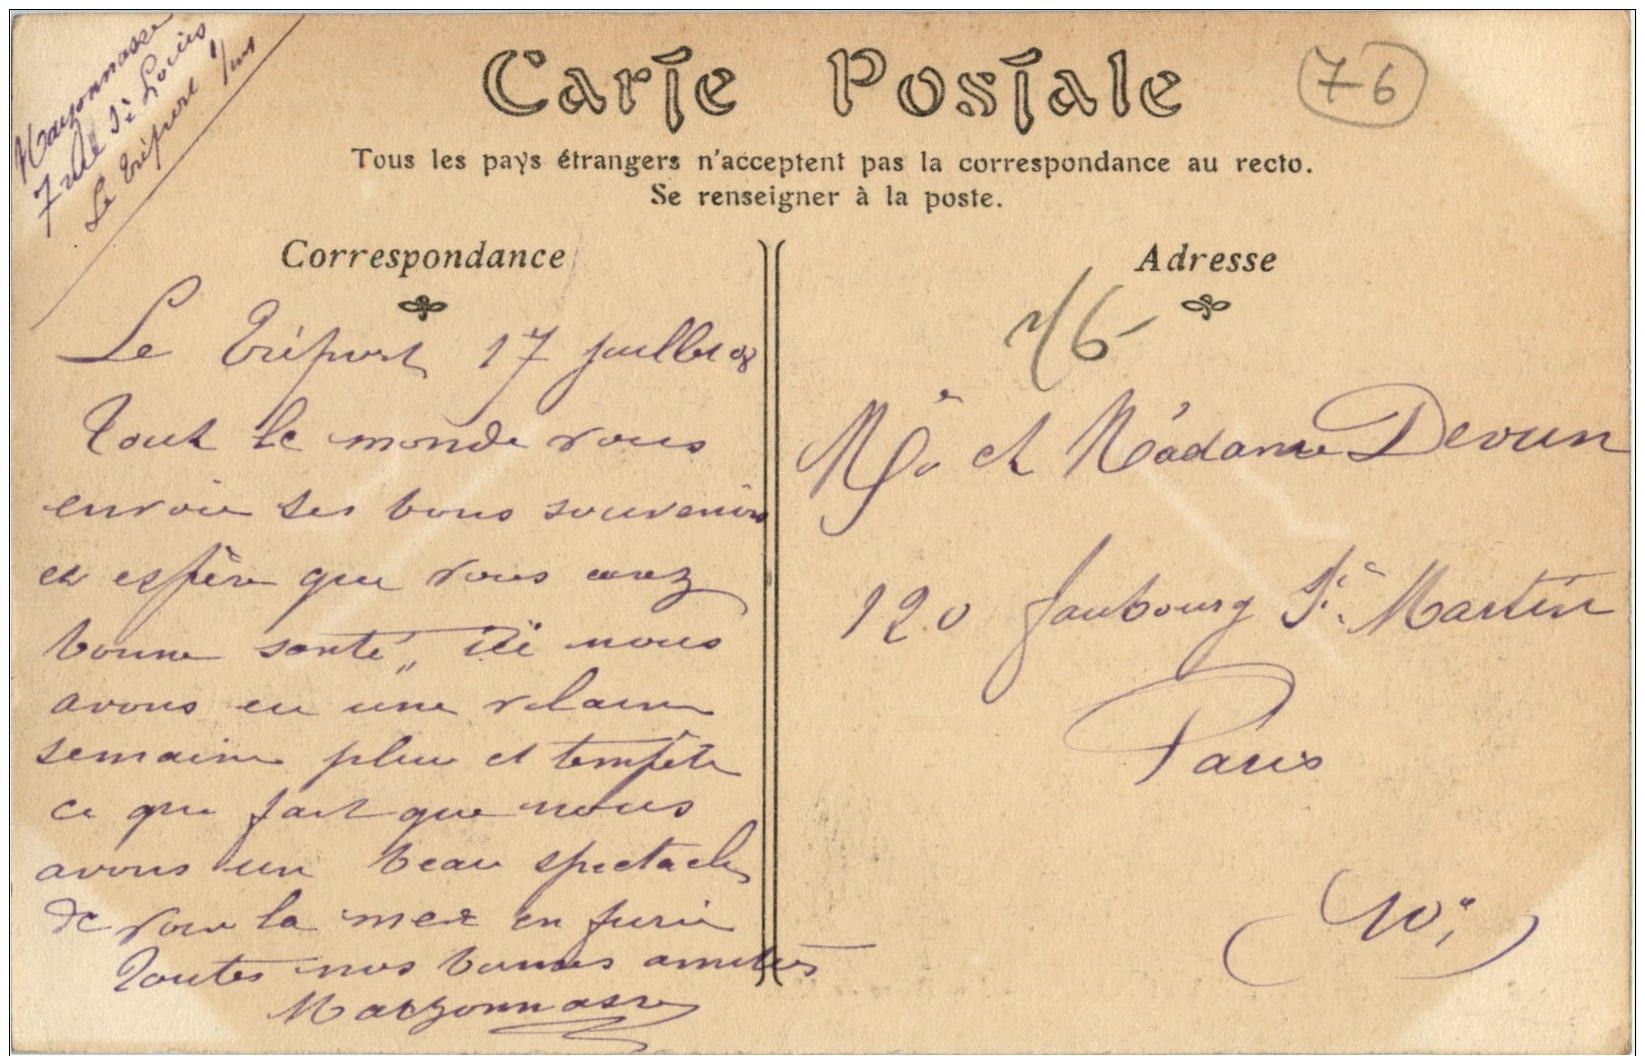 Marzonnasse
7 rue St Louis
Le Tréport
Carte Postale
76
Tous les pays étrangers n'acceptent pas la correspondance au recto.
Se renseigner à la poste.
Correspondance
Le Tréport 17 juillet 08
Tout le monde vous
envoie ses bons souvenirs
et espère que vous avez
bonne santé,, Ici nous
avons eu une vilaine
semaine pluie et tempête
ce qui fait que nous
avons un beau spectacle
de voir la mer en furie
Toutes nos bonnes amitiés
Marzonnasse
Adresse
76-
Mr et Madame Devun
120 faubourg St Martin
Paris
(10e)